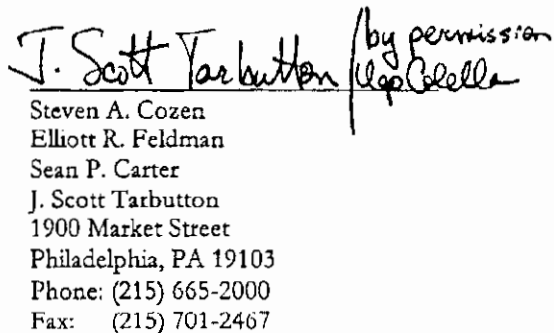 by permission
J. Scott Tarbutton / Ugo Colella
Steven A. Cozen
Elliott R. Feldman
Sean P. Carter
J. Scott Tarbutton
1900 Market Street
Philadelphia, PA 19103
Phone: (215) 665-2000
Fax: (215) 701-2467